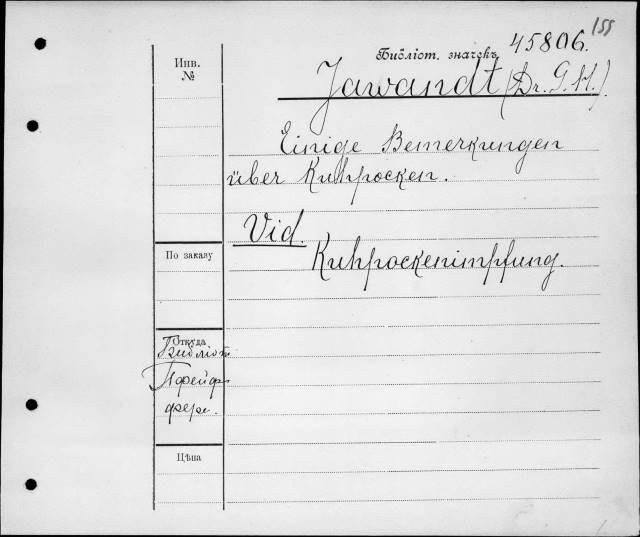 155
Библіот. значекъ 45806.
Инв.
№
Jawandt (Dr. G. H.).
Einige Bemerkungen
über Kuhpocken.
Vid.
Kuhpockenimpfung.
По заказу
Откуда
Библіот.
Пфейф-
фера.
Цѣна